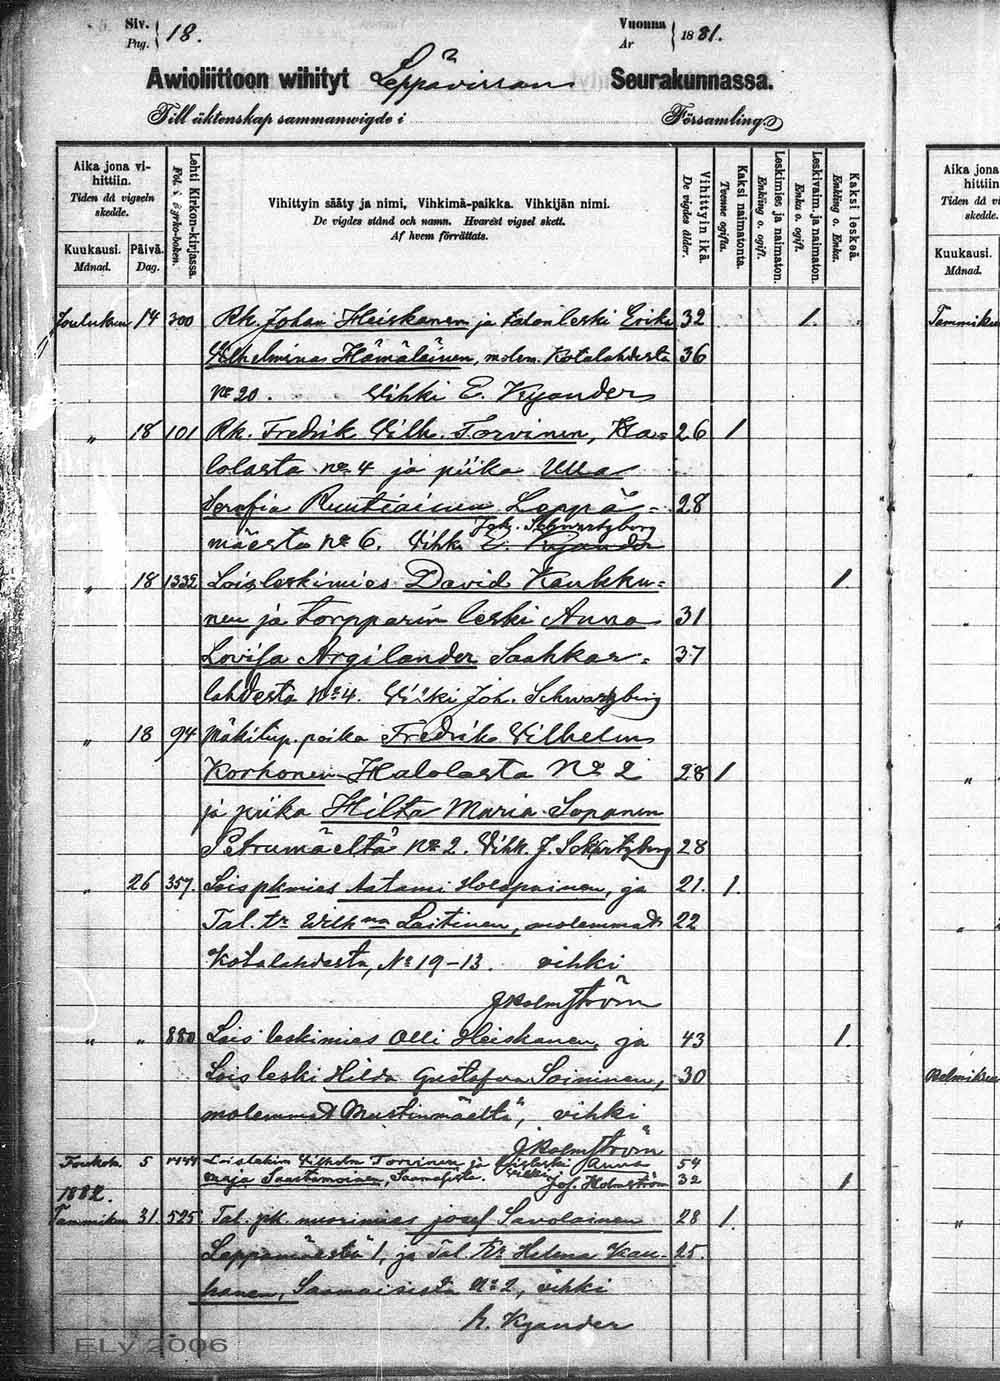 Siv. Pag. 18. Vuonna År 1881.
Awioliittoon wihityt Leppävirran Seurakunnassa.
Till äktenskap sammanwigde i Församling.
Aika jona vihittiin. Tiden då vigseln skedde.
Kuukausi. Månad.
Päivä. Dag.
Lehti Kirkon-kirjassa. Fol. i Kyrko-boken.
Vihittyin sääty ja nimi, Vihkimä-paikka. Vihkijän nimi.
De vigdes stånd och namn. Hvarest vigsel skett.
Af hvem förrättats.
Vihittyin ikä. De vigdes ålder.
Kaksi naimatonta. Tvenne ogifta.
Leskimies ja naimaton. Enkling o. ogift.
Leskivaimo ja naimaton. Enka o. ogift.
Kaksi leskeä. Enkling o. Enka.
Joulukuu 14 300 Rk. Johan Heiskanen ja talonleski Erika 32 1.
Wilhelmina Hämäläinen, molem. Kotalahdesta 36
No 20. Vihki E. Kyander
„ 18 101 Rk. Fredrik Vilh. Torvinen, 26 1
lolasta no 4 ja piika Ulla
Serafia Ruutiainen Leppä- 28
mäestä No 6. Vihk. Joh. Schwartzberg E. Kyander
„ 18 1332 Lois, leskimies David Kaukku- 1.
nen ja torpparin leski Anna 31
Lovisa Argilander Saahkar- 37
lahdesta No 4. Vihki Joh. Schwartzberg
„ 18 94 Mäkitup. poika Fredrik Vilhelm
Korhonen Halolasta No 2 28 1
ja piika Hilta Maria Sopanen
Petrumäeltä No 2. Vihk. J. Schwrtzberg 28
„ 26 357. Lois pkmies Aatami Holopainen, ja 21. 1.
Tal. tr Wilhna Laitinen, molemmat 22
Kotalahdesta, No 19-13. vihki
J Holmström
„ „ 880 Lois leskimies Olli Heiskanen, ja 43 1.
Lois leski Hilda Gustafva Soininen, 30
molemmat Mustinmäeltä, vihki
J Holmström
5 Vilhelm Torvinen ja Loisleski Anna 54
Maja Saastamoinen, vihki Jos. Holmström 32 1
1882.
Tammikuu 31 525 Tal. pk. nuorimies Josef Savolainen 28 1.
Leppämäestä 1, ja Tal. tr. Helena Kau- 25.
hanen, No 2, vihki
A. Kyander
Aika jona
vihittiin
Tiden då vi
skedde.
Kuukausi.
Månad.
Tammikuu
„
Helmikuu
„
ELy 2006